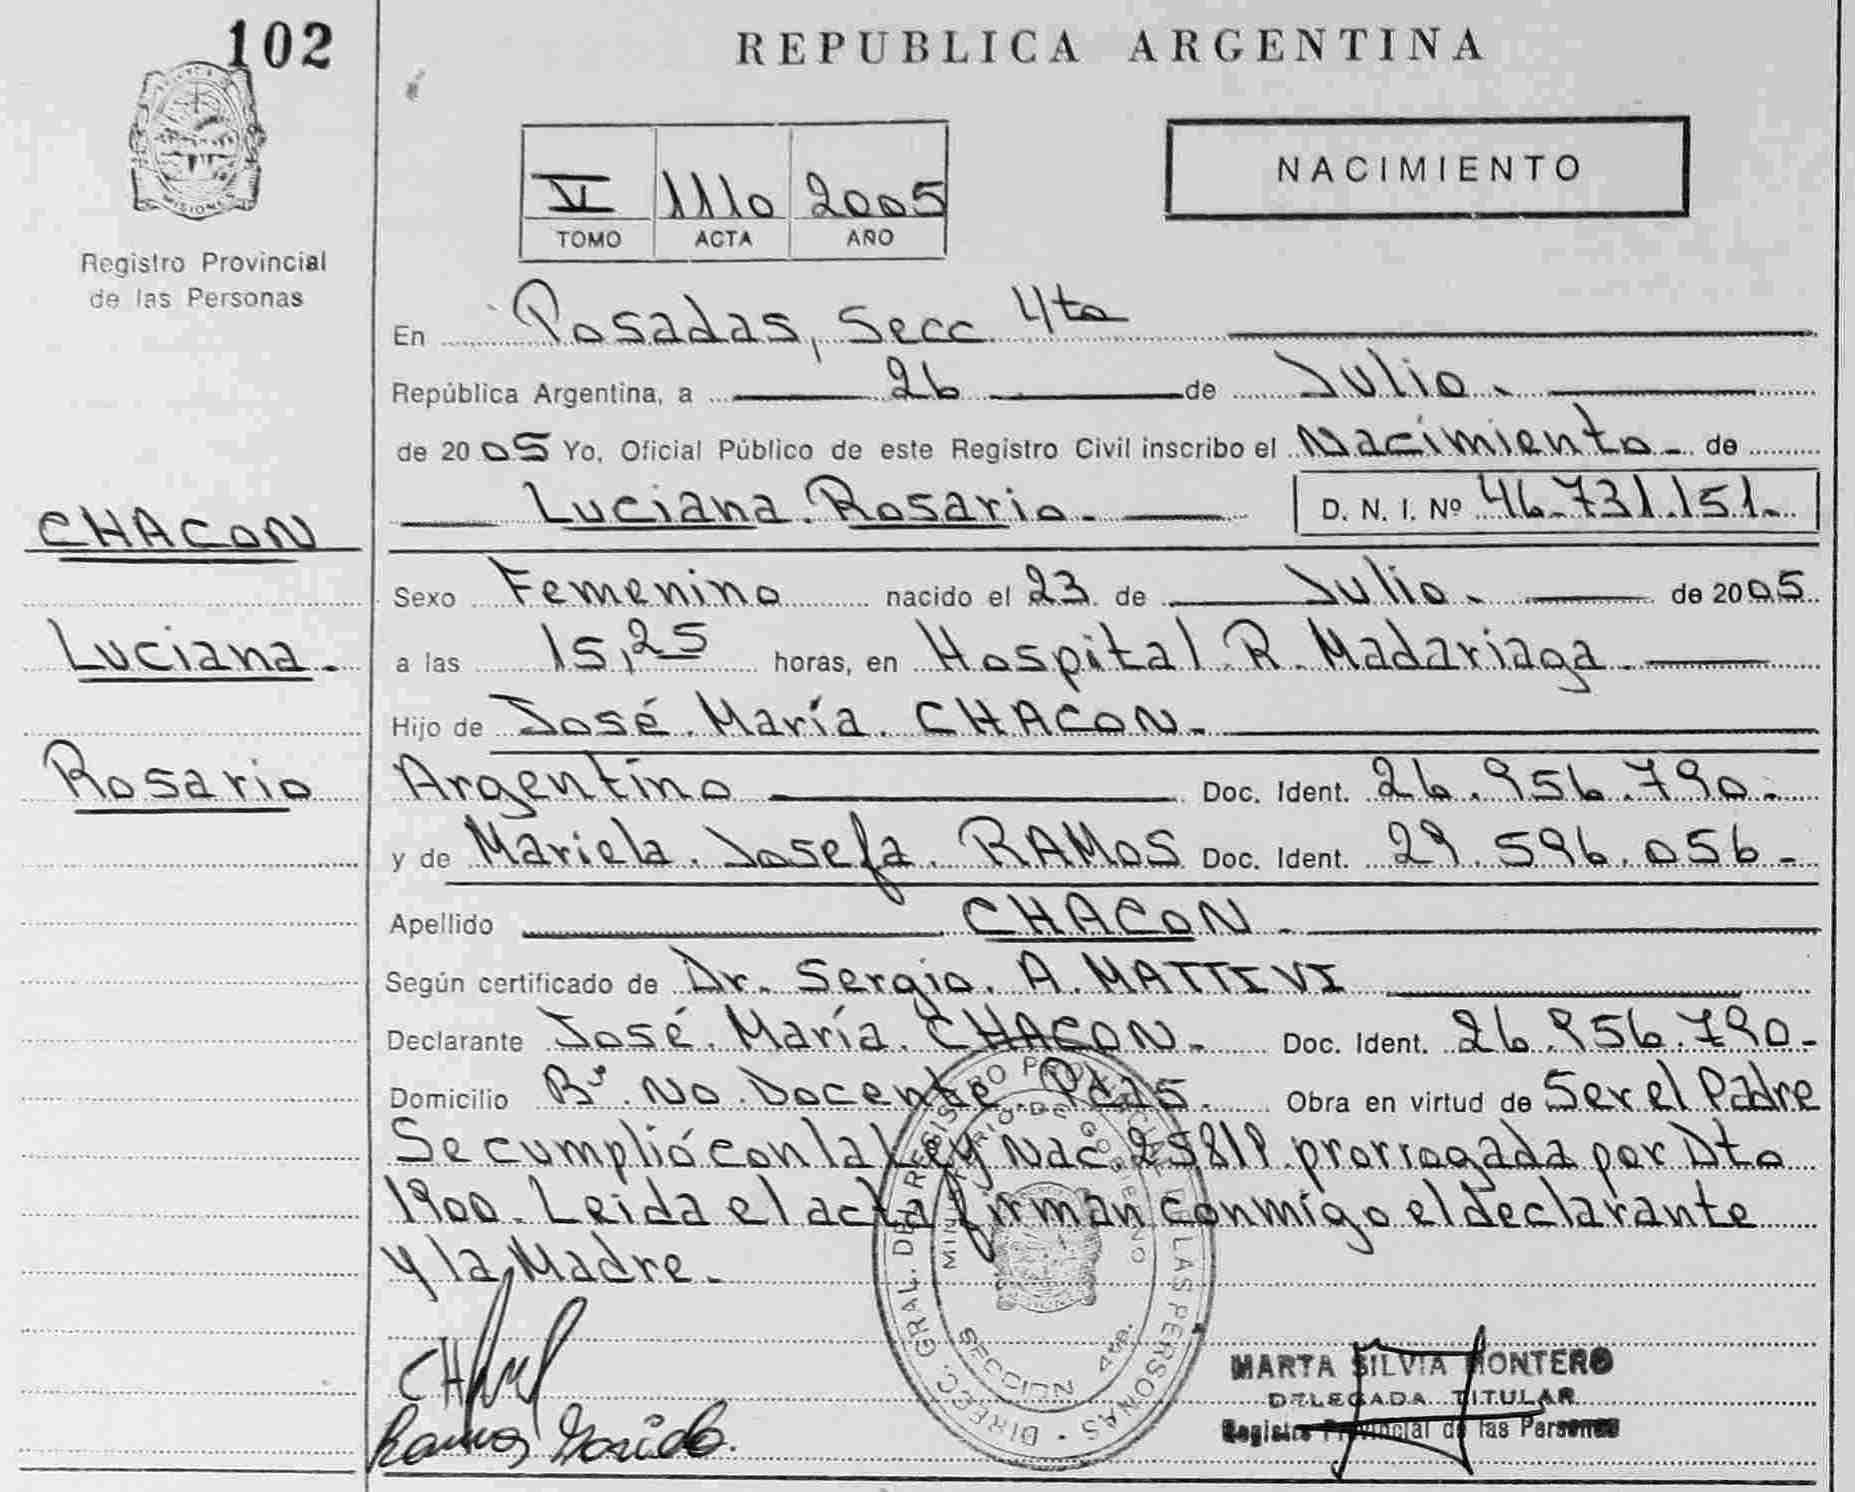 102
REPUBLICA ARGENTINA
MISIONES
Registro Provincial
de las Personas
VI 1110 2005
TOMO ACTA AÑO
NACIMIENTO
En Posadas, Secc 4ta
República Argentina, a 26 de Julio.
de 2005 Yo, Oficial Público de este Registro Civil inscribo el Nacimiento de
Luciana Rosario. D. N. I. Nº 46.731.151.
CHACON
Sexo Femenino nacido el 23 de Julio. de 2005
Luciana.
a las 15,25 horas, en Hospital R. Madariaga
Hijo de José María CHACON.
Rosario
Argentino Doc. Ident. 26.956.790.
y de Mariela Josefa RAMOS Doc. Ident. 29.596.056.
Apellido CHACON.
Según certificado de Dr. Sergio A. MATTIVI
Declarante José María CHACON. Doc. Ident. 26.956.790.
Domicilio Bº No Docente Pdas. Obra en virtud de Ser el Padre
Se cumplió con la Ley Nac 25819 prorrogada por Dto
1900. Leida el acta firman conmigo el declarante
y la Madre.
DIRECC. GRAL. DEL REGISTRO PROVINCIAL DE LAS PERSONAS
MINISTERIO DE GOBIERNO
SECCION 4ta.
Ramos Mariela.
MARTA SILVIA MONTERO
DELEGADA TITULAR
Registro Provincial de las Personas